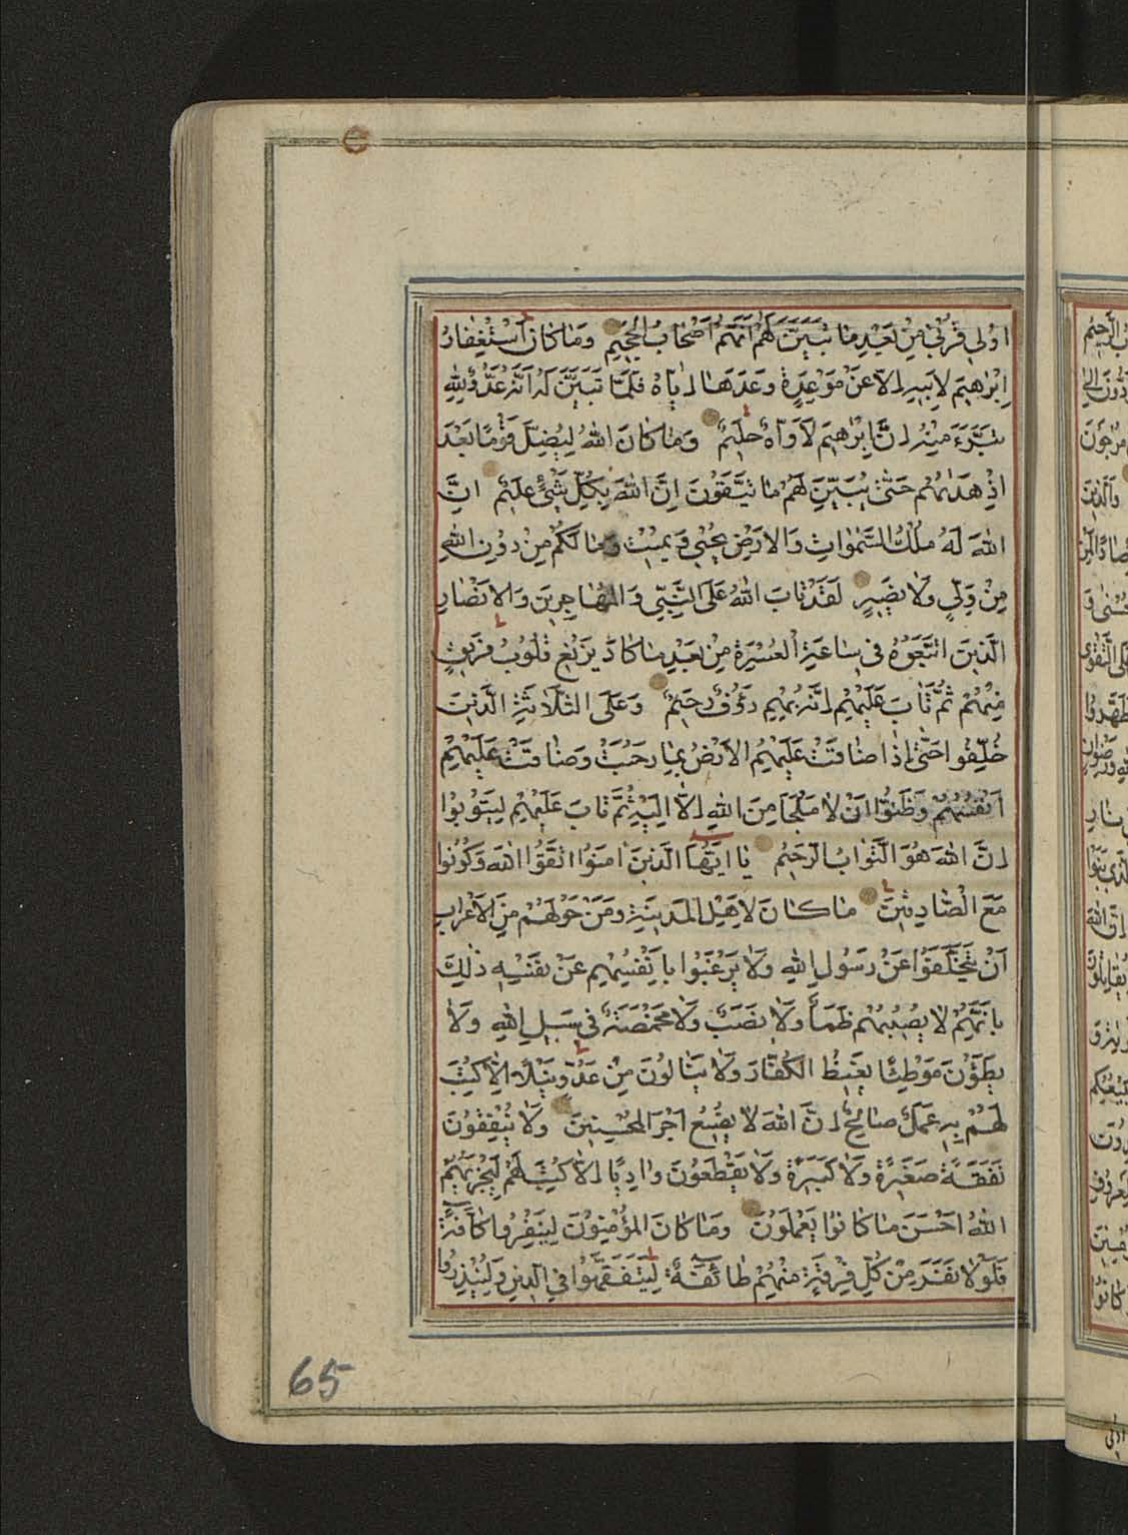 اُولي قُرْبٰى مِنْ بَعْدِ مَا تَبَيَّنَ لَهُمْ اَنَّهُمْ اَصْحَابُ الْجَحِيمِ وَمَا كَانَ اسْتِغْفَارُ
اِبْرٰهِيمَ لِاَبِيهِ اِلَّا عَنْ مَوْعِدَةٍ وَعَدَهَا اِيَّاهُ فَلَمَّا تَبَيَّنَ لَهُ اَنَّهُ عَدُوٌّ لِلّٰهِ
تَبَرَّءَ مِنْهُ اِنَّ اِبْرٰهِيمَ لَاَوَّاهٌ حَلِيمٌ وَمَا كَانَ اللّٰهُ لِيُضِلَّ قَوْمًا بَعْدَ
اِذْ هَدٰيهُمْ حَتّٰى يُبَيِّنَ لَهُمْ مَا يَتَّقُونَ اِنَّ اللّٰهَ بِكُلِّ شَيْئٍ عَلِيمٌ اِنَّ
اللّٰهَ لَهُ مُلْكُ السَّمٰوَاتِ وَالْاَرْضِ يُحْيِي وَيُمِيتُ وَمَا لَكُمْ مِنْ دُونِ اللّٰهِ
مِنْ وَلِيٍّ وَلَا نَصِيرٍ لَقَدْ تَابَ اللّٰهُ عَلَى النَّبِيِّ وَالْمُهَاجِرِينَ وَالْاَنْصَارِ
الَّذِينَ اتَّبَعُوهُ فِي سَاعَةِ الْعُسْرَةِ مِنْ بَعْدِ مَا كَادَ يَزِيغُ قُلُوبُ فَرِيقٍ
مِنْهُمْ ثُمَّ تَابَ عَلَيْهِمْ اِنَّهُ بِهِمْ رَؤُفٌ رَحِيمٌ وَعَلَى الثَّلَاثَةِ الَّذِينَ
خُلِّفُوا حَتّٰى اِذَا ضَاقَتْ عَلَيْهِمُ الْاَرْضُ بِمَا رَحُبَتْ وَضَاقَتْ عَلَيْهِمْ
اَنْفُسُهُمْ وَظَنُّوا اَنْ لَا مَلْجَاَ مِنَ اللّٰهِ اِلَّا اِلَيْهِ ثُمَّ تَابَ عَلَيْهِمْ لِيَتُوبُوا
اِنَّ اللّٰهَ هُوَ التَّوَّابُ الرَّحِيمُ يَا اَيُّهَا الَّذِينَ اٰمَنُوا اتَّقُوا اللّٰهَ وَكُونُوا
مَعَ الصَّادِقِينَ مَا كَانَ لِاَهْلِ الْمَدِينَةِ وَمَنْ حَوْلَهُمْ مِنَ الْاَعْرَابِ
اَنْ يَتَخَلَّفُوا عَنْ رَسُولِ اللّٰهِ وَلَا يَرْغَبُوا بِاَنْفُسِهِمْ عَنْ نَفْسِهِ ذٰلِكَ
بِاَنَّهُمْ لَا يُصِيبُهُمْ ظَمَاٌ وَلَا نَصَبٌ وَلَا مَخْمَصَةٌ فِي سَبِيلِ اللّٰهِ وَلَا
يَطَؤُنَ مَوْطِئًا يَغِيظُ الْكُفَّارَ وَلَا يَنَالُونَ مِنْ عَدُوٍّ نَيْلًا اِلَّا كُتِبَ
لَهُمْ بِهِ عَمَلٌ صَالِحٌ اِنَّ اللّٰهَ لَا يُضِيعُ اَجْرَ الْمُحْسِنِينَ وَلَا يُنْفِقُونَ
نَفَقَةً صَغِيرَةً وَلَا كَبِيرَةً وَلَا يَقْطَعُونَ وَادِيًا اِلَّا كُتِبَ لَهُمْ لِيَجْزِيَهُمُ
اللّٰهُ اَحْسَنَ مَا كَانُوا يَعْمَلُونَ وَمَا كَانَ الْمُؤْمِنُونَ لِيَنْفِرُوا كَافَّةً
فَلَوْلَا نَفَرَ مِنْ كُلِّ فِرْقَةٍ مِنْهُمْ طَائِفَةٌ لِيَتَفَقَّهُوا فِي الدِّينِ وَلِيُنْذِرُوا
65